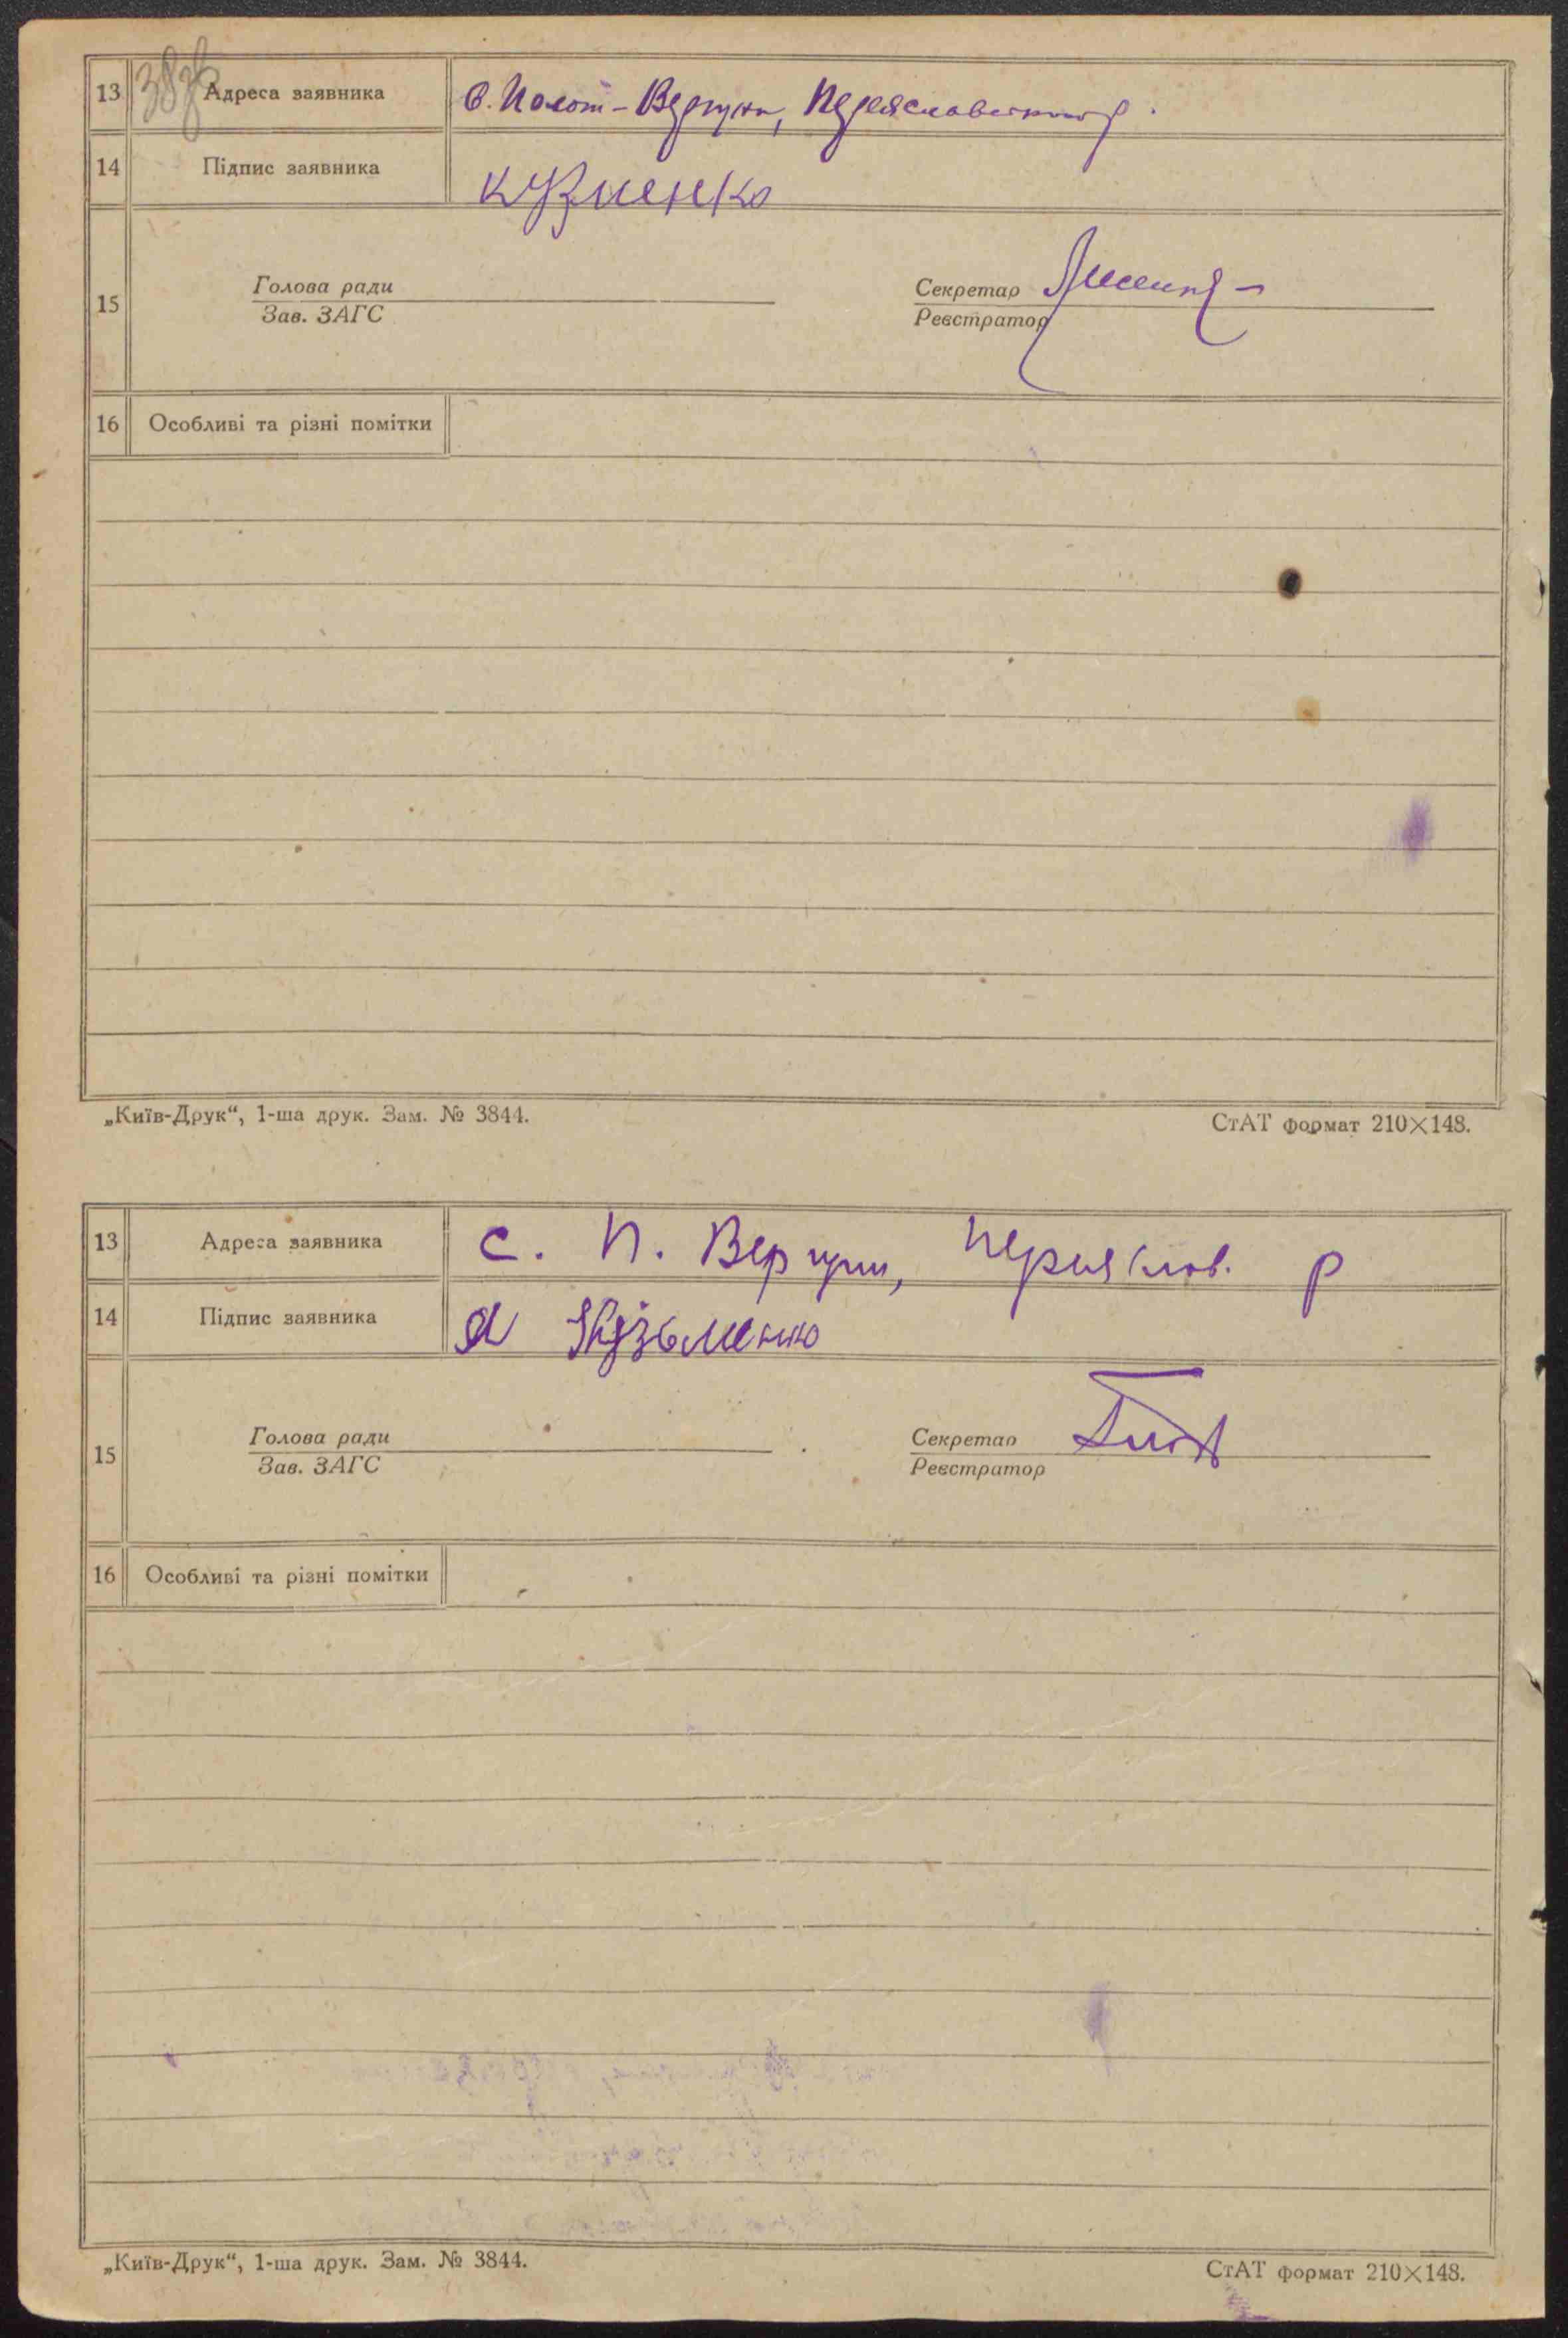 13 38зв Адреса заявника с. Полот-Вергуни, Переяславського р.
14 Підпис заявника Кузменко
Голова ради Секретар
15
Зав. ЗАГС Реєстратор
16 Особливі та різні помітки
„Київ-Друк“, 1-ша друк. Зам. № 3844. СтАТ формат 210×148.
13 Адреса заявника с. П. Вергуни, Переяслов. р
14 Підпис заявника Кузьменко
Голова ради Секретар
15
Зав. ЗАГС Реєстратор
16 Особливі та різні помітки
„Київ-Друк“, 1-ша друк. Зам. № 3844. СтАТ формат 210×148.